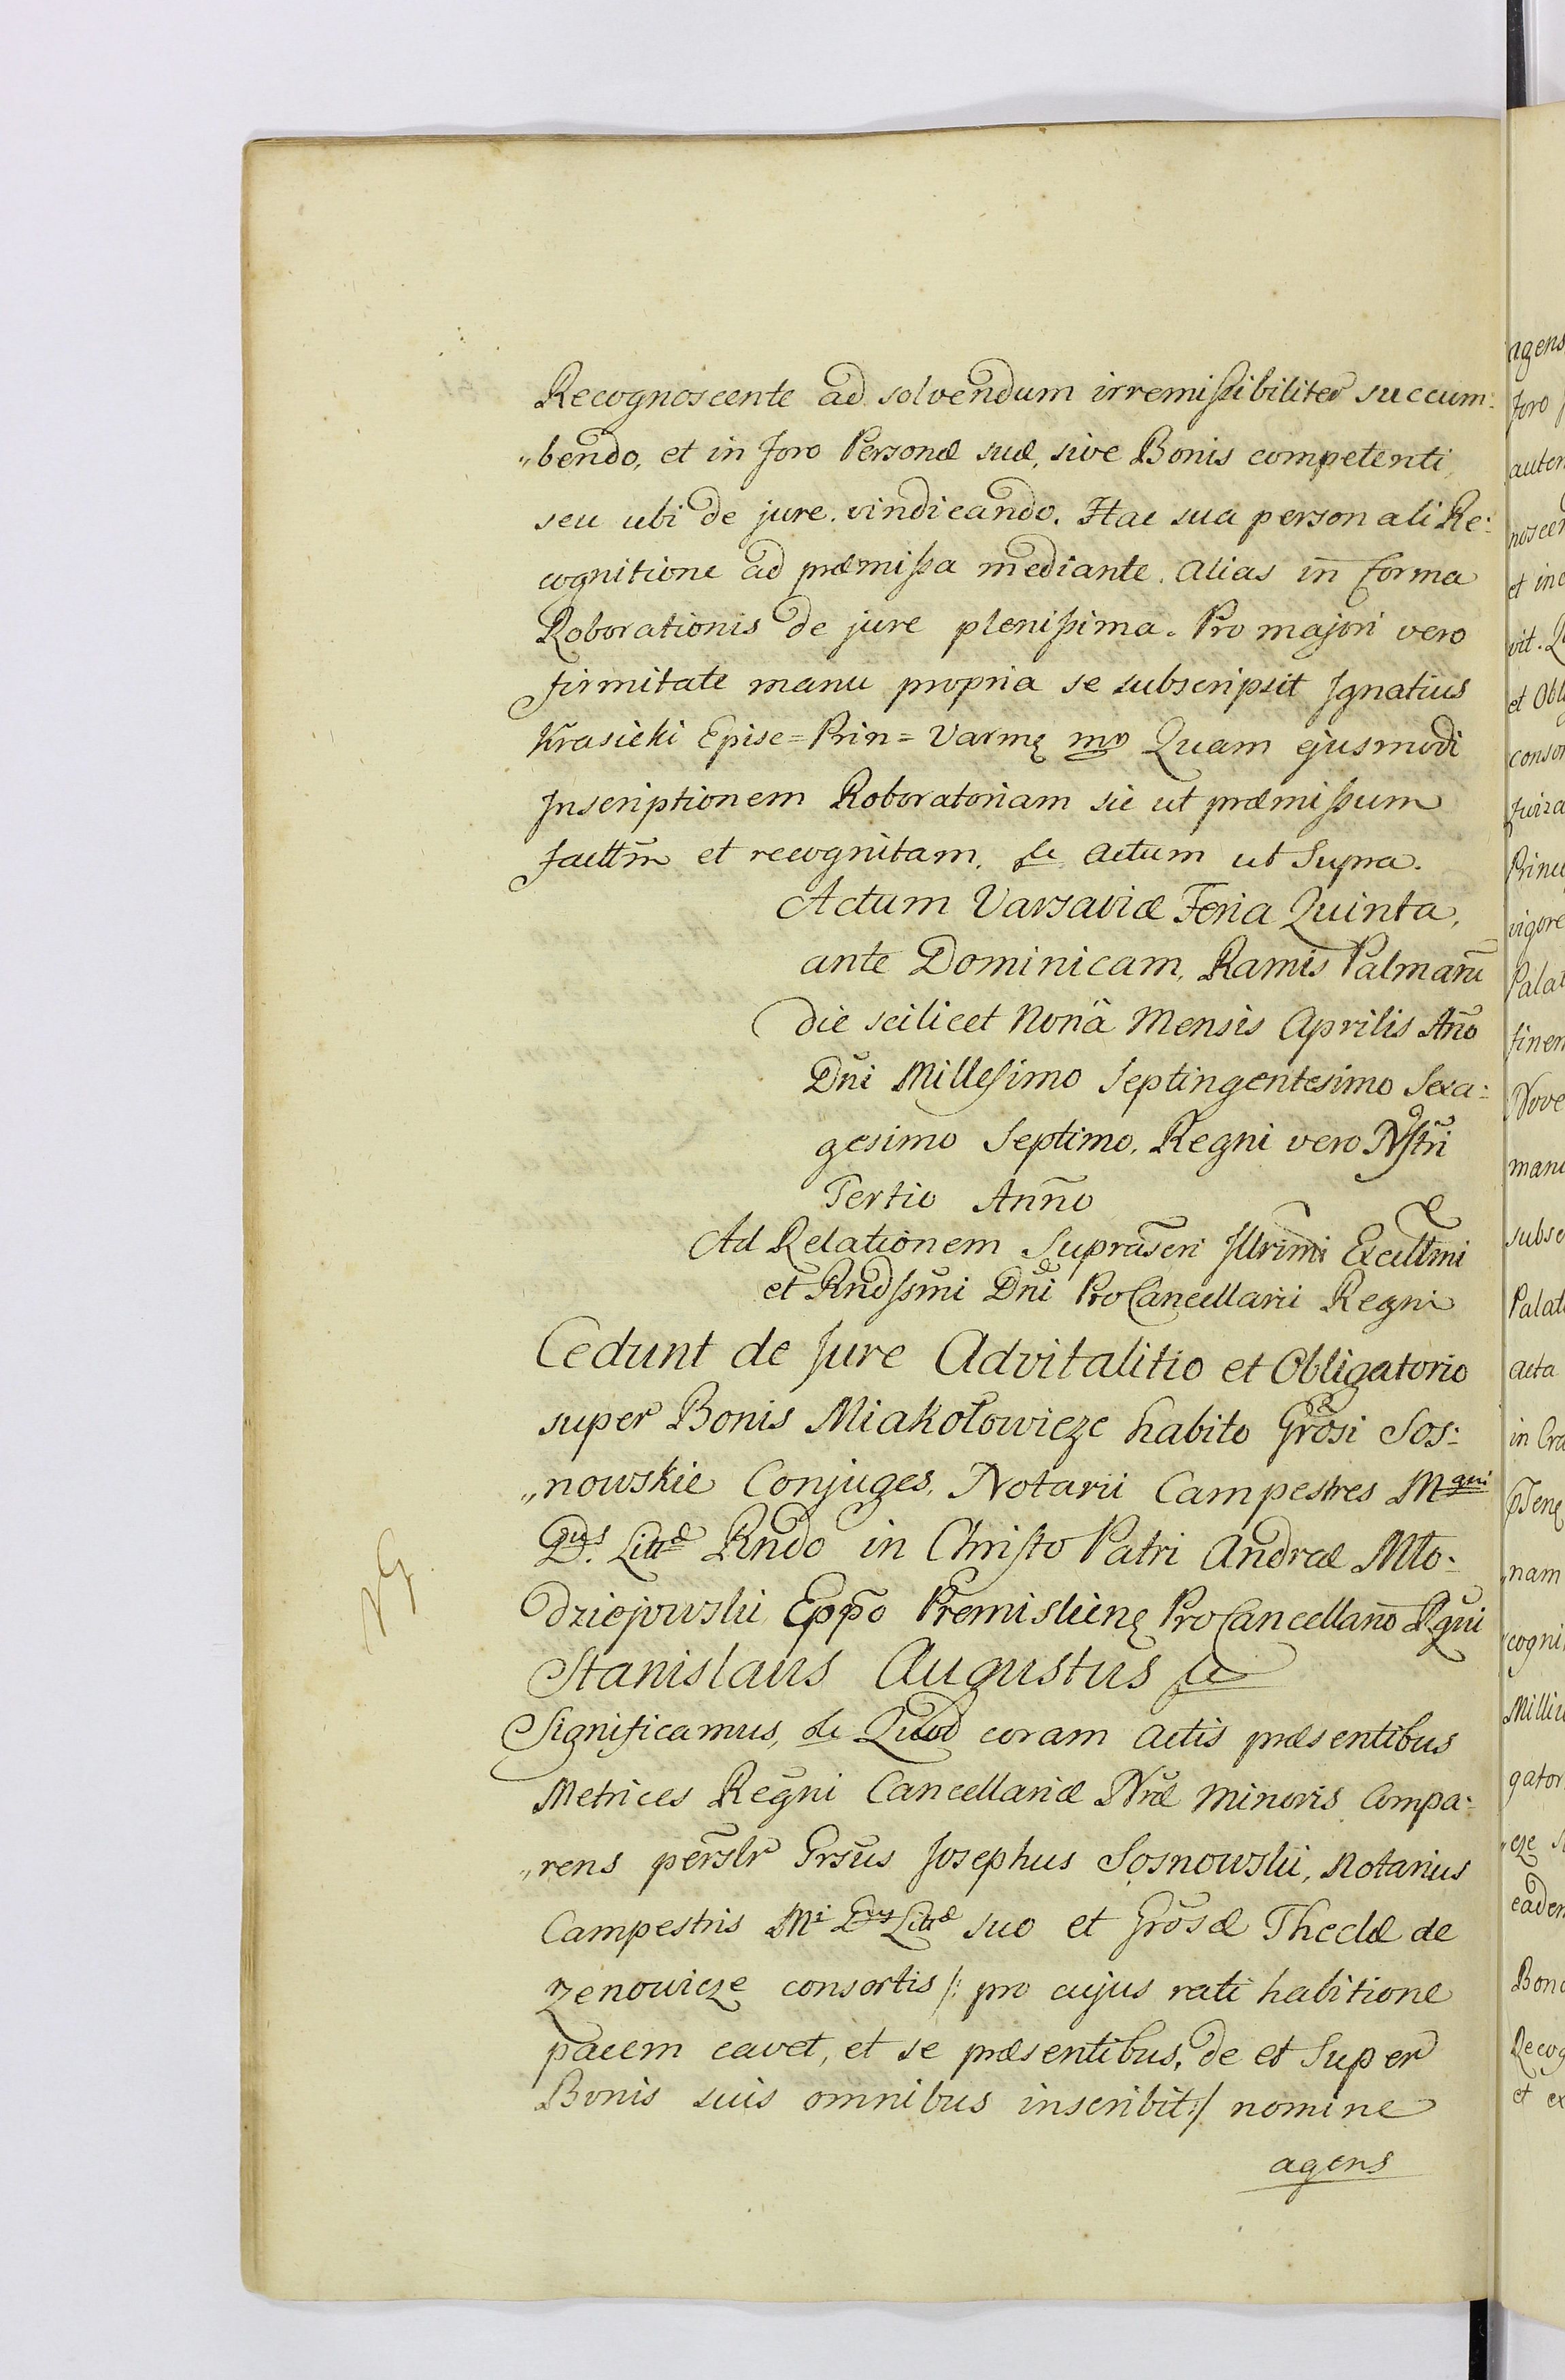 Recognoscente ad solvendum irremissibiliter succum:
"bendo, et in foro Personæ suæ, sive Bonis competenti,
seu ubi de jure vindicando. Hac sua personali Re:
cognitione ad præmissa mediante. Alias in forma
Roborationis de jure plenissima. Pro majori vero
firmitate manu propria se subscripsit Ignatius
Krasicki Episc= Prin= Varmę mp Quam ejusmodi
Inscriptionem Roboratoriam sic ut præmissum
facttm̃ et recognitam, &c Actum ut Supra.
Actum Varsaviæ Feria Quinta,
ante Dominicam, Ramis Palmarũ
die scilicet Nonâ Mensis Aprilis Añno
Dñi Millesimo Septingentesimo Sexa:
gesimo Septimo, Regni vero Nstri
Tertio Anño
Ad Relationem Suprascri Illrimi Excllmi
et Rndssmi Dñi ProCancellarii Regni
Cedunt de Jure Advitalitio et Obligatorio
super Bonis Miakołowicze habito Grosi Sos:
"nowskie Conjuges, Notarii Campestres Mgni
Dus. Littæ Rndo in Christo Patri Andræ Mło:
dziejowski Eppo Premislienę ProCancellario Rgni
Stanislaus Augustus &c
Significamus, &c Quod coram Actis præsentibus
Metrices Regni Cancellariæ Nræ Minoris Compa:
"rens perslr Grsus Josephus Sosnowski, Notarius
Campestris Mi Dus Littæ suo et Grosæ Theclæ de
Zenowicze consortis /: pro cujus rati habitione
pacem cavet, et se præsentibus, de et Super
Bonis suis omnibus inscribit :/ nomine
agens